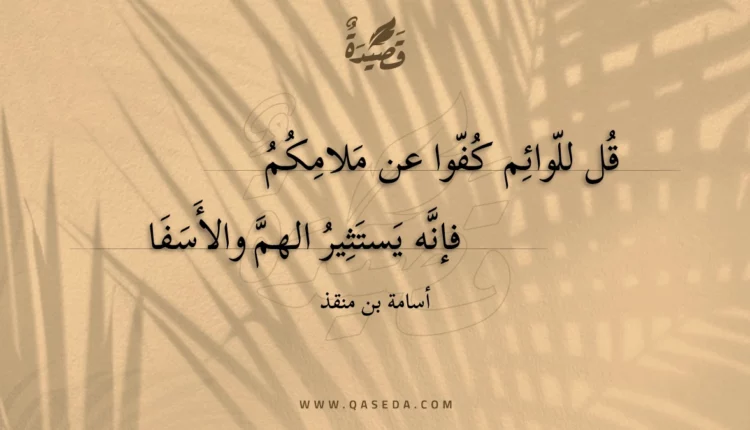 قَصِيْدَةٌ
قُل للّوائِم كُفّوا عن مَلامِكُمُ
فإنَّه يَستَثِيرُ الهمَّ والأَسَفَا
أسامة بن منقذ
WWW.QASEDA.COM